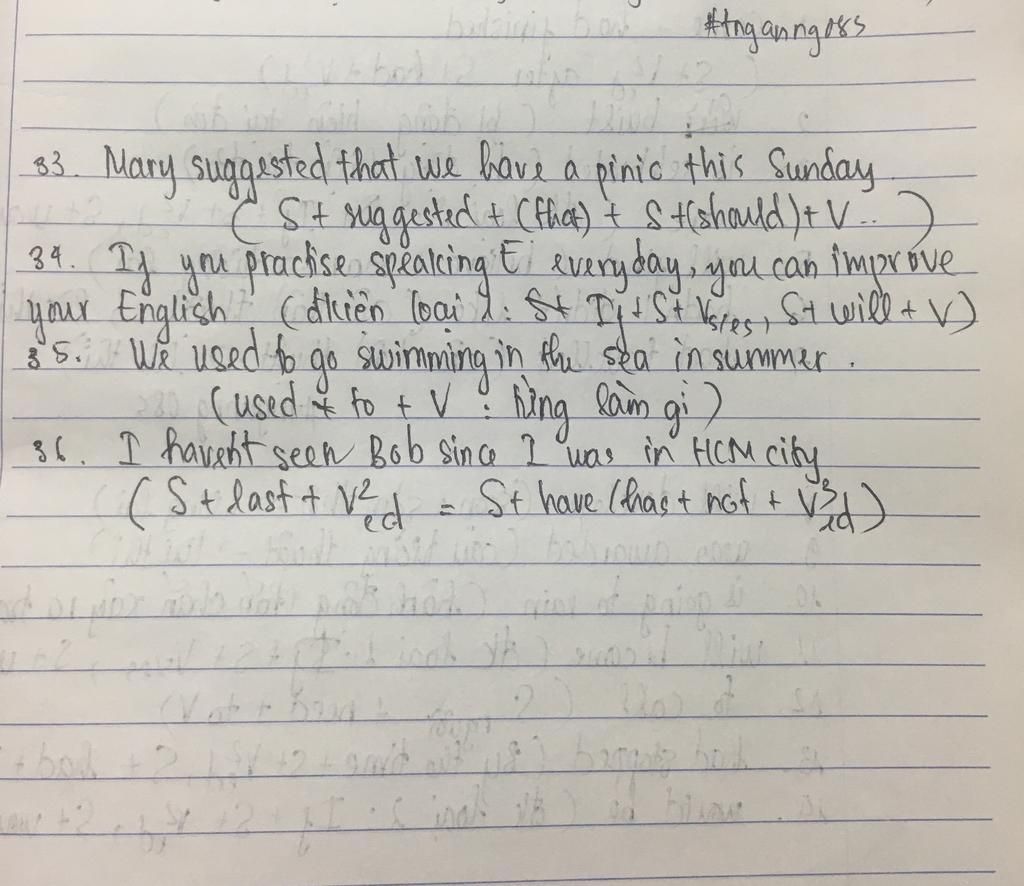 #tnganng085
33. Mary suggested that we have a pinic this Sunday
( S + suggested + (that) + S +(should)+ V .. )
34. If you practise speaking E everyday, you can improve
your English (đkiện loại 1: If + S + Vs/es, S+ will + V)
35. We used to go swimming in the sea in summer.
(used + to + V : từng làm gì)
36. I haven't seen Bob since I was in HCM city
( S + last + V2ed = S+ have (has + not + V3ed)